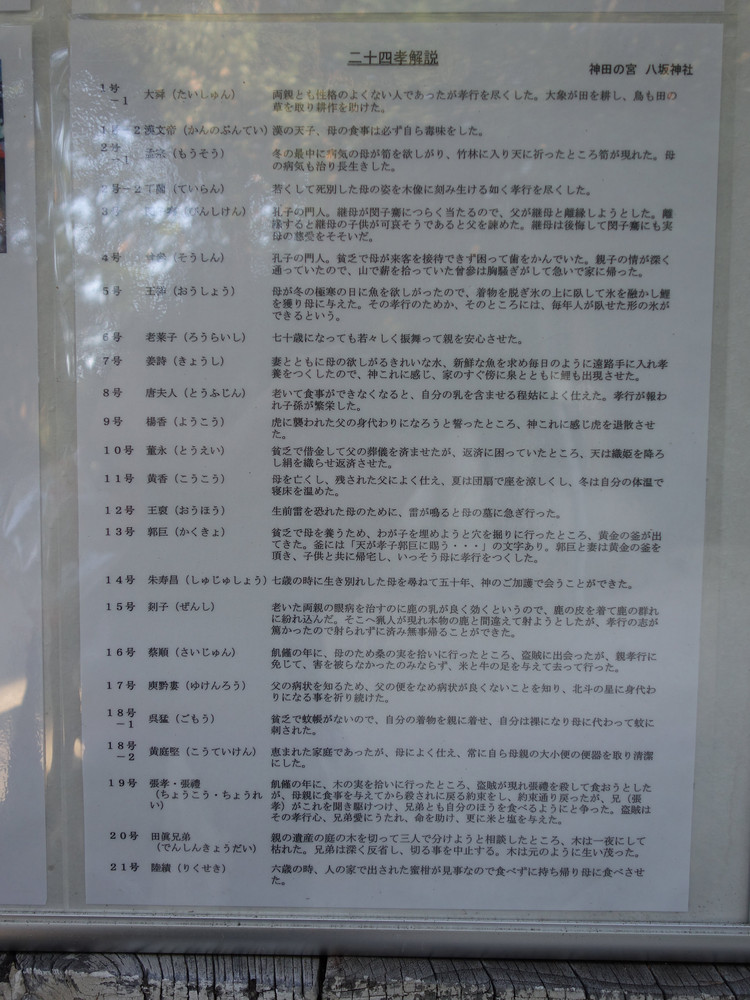 二十四孝解説
神田の宮 八坂神社
1号－1 大舜（たいしゅん） 両親とも性格のよくない人であったが孝行を尽くした。大象が田を耕し、鳥も田の
草を取り耕作を助けた。
1号－2 漢文帝（かんのぶんてい） 漢の天子、母の食事は必ず自ら毒味をした。
2号－1 孟宗（もうそう） 冬の最中に病気の母が筍を欲しがり、竹林に入り天に祈ったところ筍が現れた。母
の病気も治り長生きした。
2号－2 丁蘭（ていらん） 若くして死別した母の姿を木像に刻み生ける如く孝行を尽くした。
3号 （びんしけん） 孔子の門人。継母が閔子騫につらく当たるので、父が継母と離縁しようとした。離
縁すると継母の子供が可哀そうであると父を諫めた。継母は後悔して閔子騫にも実
母の慈愛をそそいだ。
4号 曾参（そうしん） 孔子の門人。貧乏で母が来客を接待できず困って歯をかんでいた。親子の情が深く
通っていたので、山で薪を拾っていた曾参は胸騒ぎがして急いで家に帰った。
5号 王祥（おうしょう） 母が冬の極寒の日に魚を欲しがったので、着物を脱ぎ氷の上に臥して氷を融かし鯉
を獲り母に与えた。その孝行のためか、そのところには、毎年人が臥せた形の氷が
できるという。
6号 老莱子（ろうらいし） 七十歳になっても若々しく振舞って親を安心させた。
7号 姜詩（きょうし） 妻とともに母の欲しがるきれいな水、新鮮な魚を求め毎日のように遠路手に入れ孝
養をつくしたので、神これに感じ、家のすぐ傍に泉とともに鯉も出現させた。
8号 唐夫人（とうふじん） 老いて食事ができなくなると、自分の乳を含ませる程姑によく仕えた。孝行が報わ
れ子孫が繁栄した。
9号 楊香（ようこう） 虎に襲われた父の身代わりになろうと誓ったところ、神これに感じ虎を退散させ
た。
10号 董永（とうえい） 貧乏で借金して父の葬儀を済ませたが、返済に困っていたところ、天は織姫を降ろ
し絹を織らせ返済させた。
11号 黄香（こうこう） 母を亡くし、残された父によく仕え、夏は団扇で座を涼しくし、冬は自分の体温で
寝床を温めた。
12号 王裒（おうほう） 生前雷を恐れた母のために、雷が鳴ると母の墓に急ぎ行った。
13号 郭巨（かくきょ） 貧乏で母を養うため、わが子を埋めようと穴を掘りに行ったところ、黄金の釜が出
てきた。釜には「天が孝子郭巨に賜う・・・」の文字あり。郭巨と妻は黄金の釜を
頂き、子供と共に帰宅し、いっそう母に孝行をつくした。
14号 朱寿昌（しゅじゅしょう） 七歳の時に生き別れした母を尋ねて五十年、神のご加護で会うことができた。
15号 剡子（ぜんし） 老いた両親の眼病を治すのに鹿の乳が良く効くというので、鹿の皮を着て鹿の群れ
に紛れ込んだ。そこへ猟人が現れ本物の鹿と間違えて射ようとしたが、孝行の志が
篤かったので射られずに済み無事帰ることができた。
16号 蔡順（さいじゅん） 飢饉の年に、母のため桑の実を拾いに行ったところ、盗賊に出会ったが、親孝行に
免じて、害を被らなかったのみならず、米と牛の足を与えて去って行った。
17号 庾黔婁（ゆけんろう） 父の病状を知るため、父の便をなめ病状が良くないことを知り、北斗の星に身代わ
りになる事を祈り続けた。
18号－1 呉猛（ごもう） 貧乏で蚊帳がないので、自分の着物を親に着せ、自分は裸になり母に代わって蚊に
刺された。
18号－2 黄庭堅（こうていけん） 恵まれた家庭であったが、母によく仕え、常に自ら母親の大小便の便器を取り清潔
にした。
19号 張孝・張禮（ちょうこう・ちょうれい） 飢饉の年に、木の実を拾いに行ったところ、盗賊が現れ張禮を殺して食おうとした
が、母親に食事を与えてから殺されに戻る約束をし、約束通り戻ったが、兄（張
孝）がこれを聞き駆けつけ、兄弟とも自分のほうを食べるようにと争った。盗賊は
その孝行心、兄弟愛にうたれ、命を助け、更に米と塩を与えた。
20号 田眞兄弟（でんしんきょうだい） 親の遺産の庭の木を切って三人で分けようと相談したところ、木は一夜にして
枯れた。兄弟は深く反省し、切る事を中止する。木は元のように生い茂った。
21号 陸績（りくせき） 六歳の時、人の家で出された蜜柑が見事なので食べずに持ち帰り母に食べさせ
た。